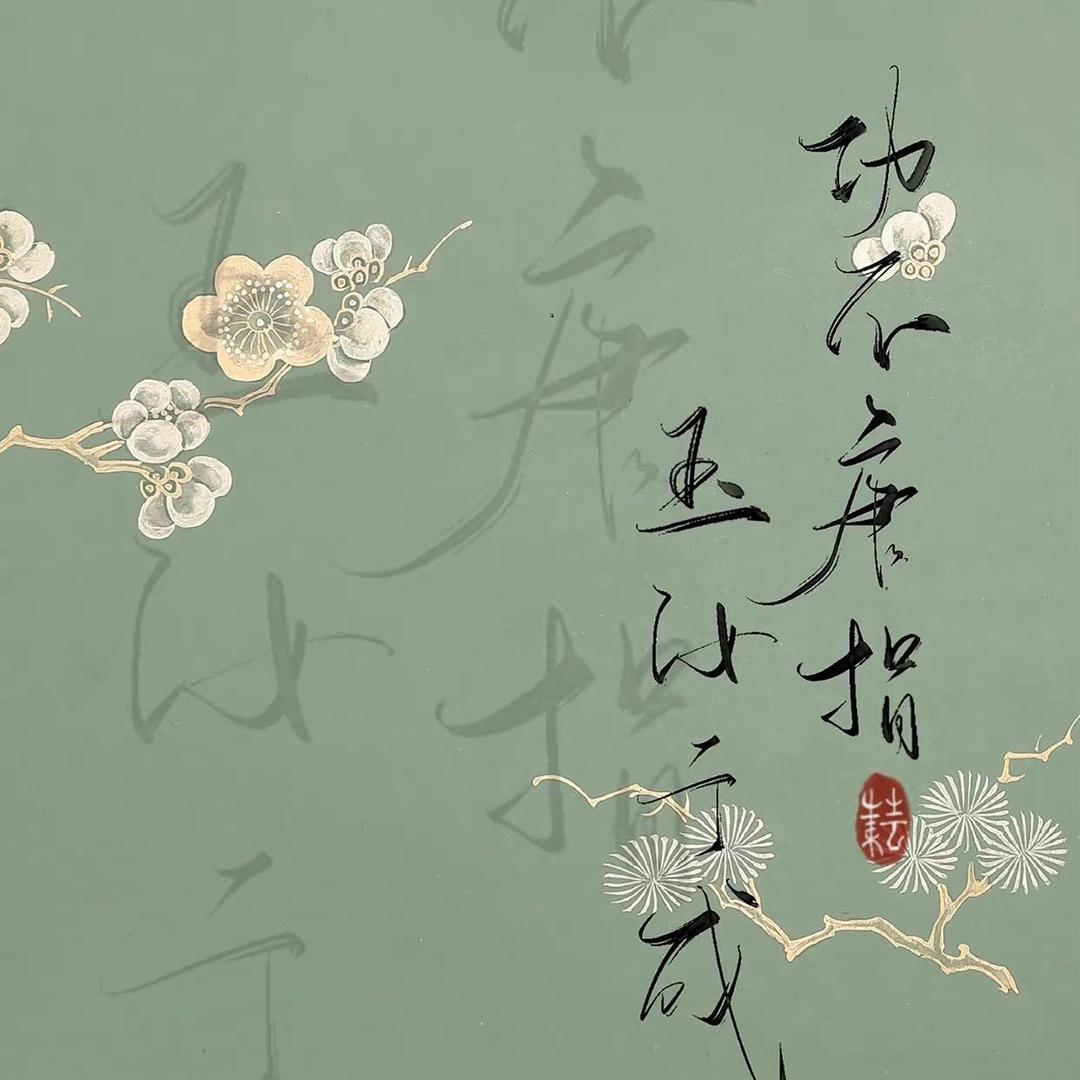 功不唐捐
玉汝于成
耘